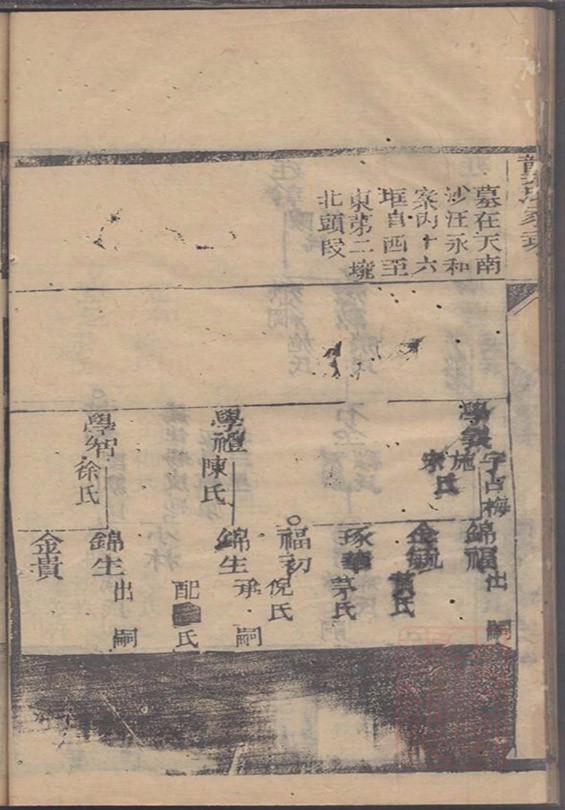 墓在天南
沙汪永和
案内十六
堀自西至
東第二壠
北頭段
學義
字占梅
施氏
宋氏
學禮
陳氏
學智
徐氏
錦福
出嗣
金毓
黄氏
琢華
茅氏
福初
倪氏
錦生
承嗣
配氏
錦生
出嗣
金貴